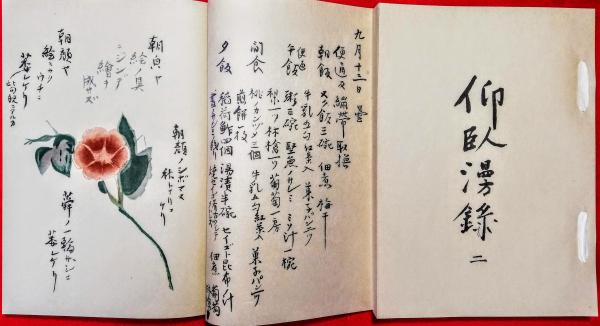 仰臥漫錄
二
九月十三日 曇
便通及繃帯取換
朝飯 ヌク飯三碗 佃煮 梅干
牛乳五勺紅茶入 菓子パン二ツ
便通
午飯 粥三碗 堅魚ノサシミ ミソ汁一椀
梨一ツ 林檎一ツ 葡萄一房
間食 桃ノカンヅメ三個 牛乳五勺紅茶入 菓子パン一ツ
煎餅一枚
夕飯 稲荷鮓四個 湯漬半碗 セイゴト昆布ノ汁
佃煮 葡萄
朝皃ヤ
絵ノ具
ニジンデ
繪ヲ
成サズ
朝顔ヤ
絵ニカク
ウチニ
萎レケリ
朝顔ノシボマヌ
秋トナリニ
ケリ
蕣ノ一輪ザシニ
萎レケリ